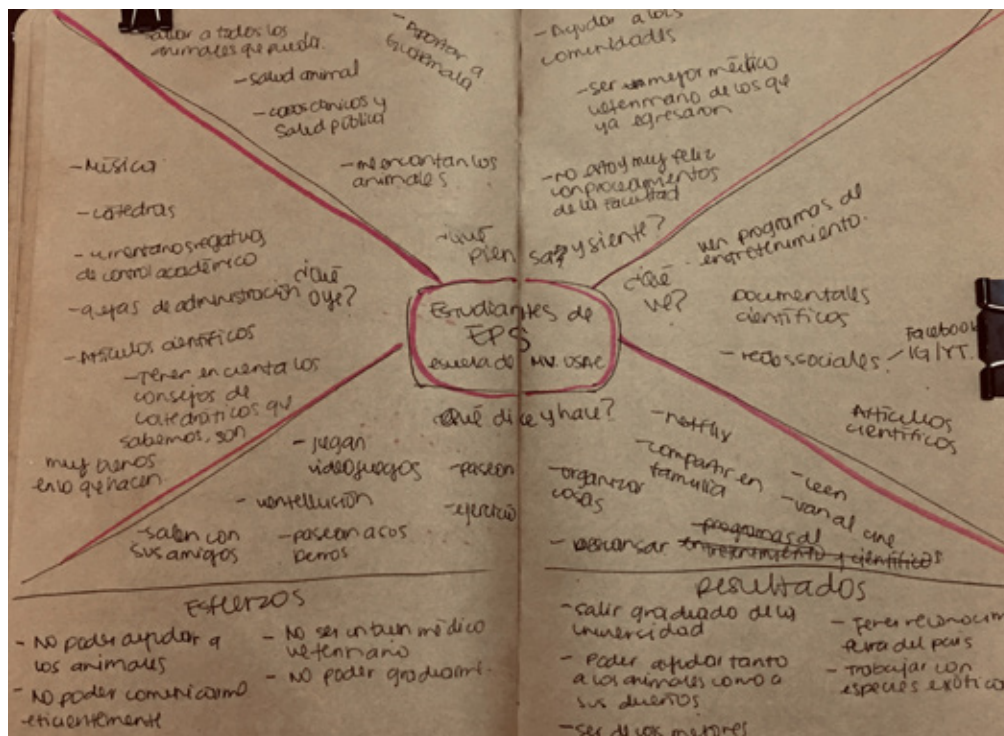 a todos los
animales que pueda.
- salud animal
- casos clínicos y
salud pública
- me encantan los
animales
Aportar a
Guatemala
- Ayudar a las
comunidades
- ser mejor médico
veterinario de los que
ya egresaron
- no estoy muy feliz
con procedimientos
de la facultad
¿Qué
piensa y siente?
- Música
- catedras
- comentarios negativos
de control académico
- quejas de administración
- Artículos científicos
- Tener en cuenta los
consejos de
catedráticos que
sabemos, son
muy buenos
en lo que hacen
¿Qué
oye?
Estudiantes de
EPS
escuela de MV. USAC
¿Qué
ve?
ven programas de
entretenimiento.
Documentales
científicos
- redes sociales
Facebook
IG/YT.
Artículos
científicos
¿Qué dice y hace?
- juegan
videojuegos
- salen con
sus amigos
- pasean a sus
perros
- pasean
- ejercicio
- organizar
cosas
- Netflix
- compartir en
familia
- leen
- van al cine
- Descansar
- programas de
entretenimiento y científicos
Esfuerzos
- No poder ayudar a
los animales
- No poder comunicarme
eficientemente
- No ser un buen médico
veterinario
- No poder graduarme.
resultados
- salir graduado de la
universidad
- Poder ayudar tanto
a los animales como a
sus dueños
- ser de los mejores
- Tener
fuera del país
- Trabajar con
especies